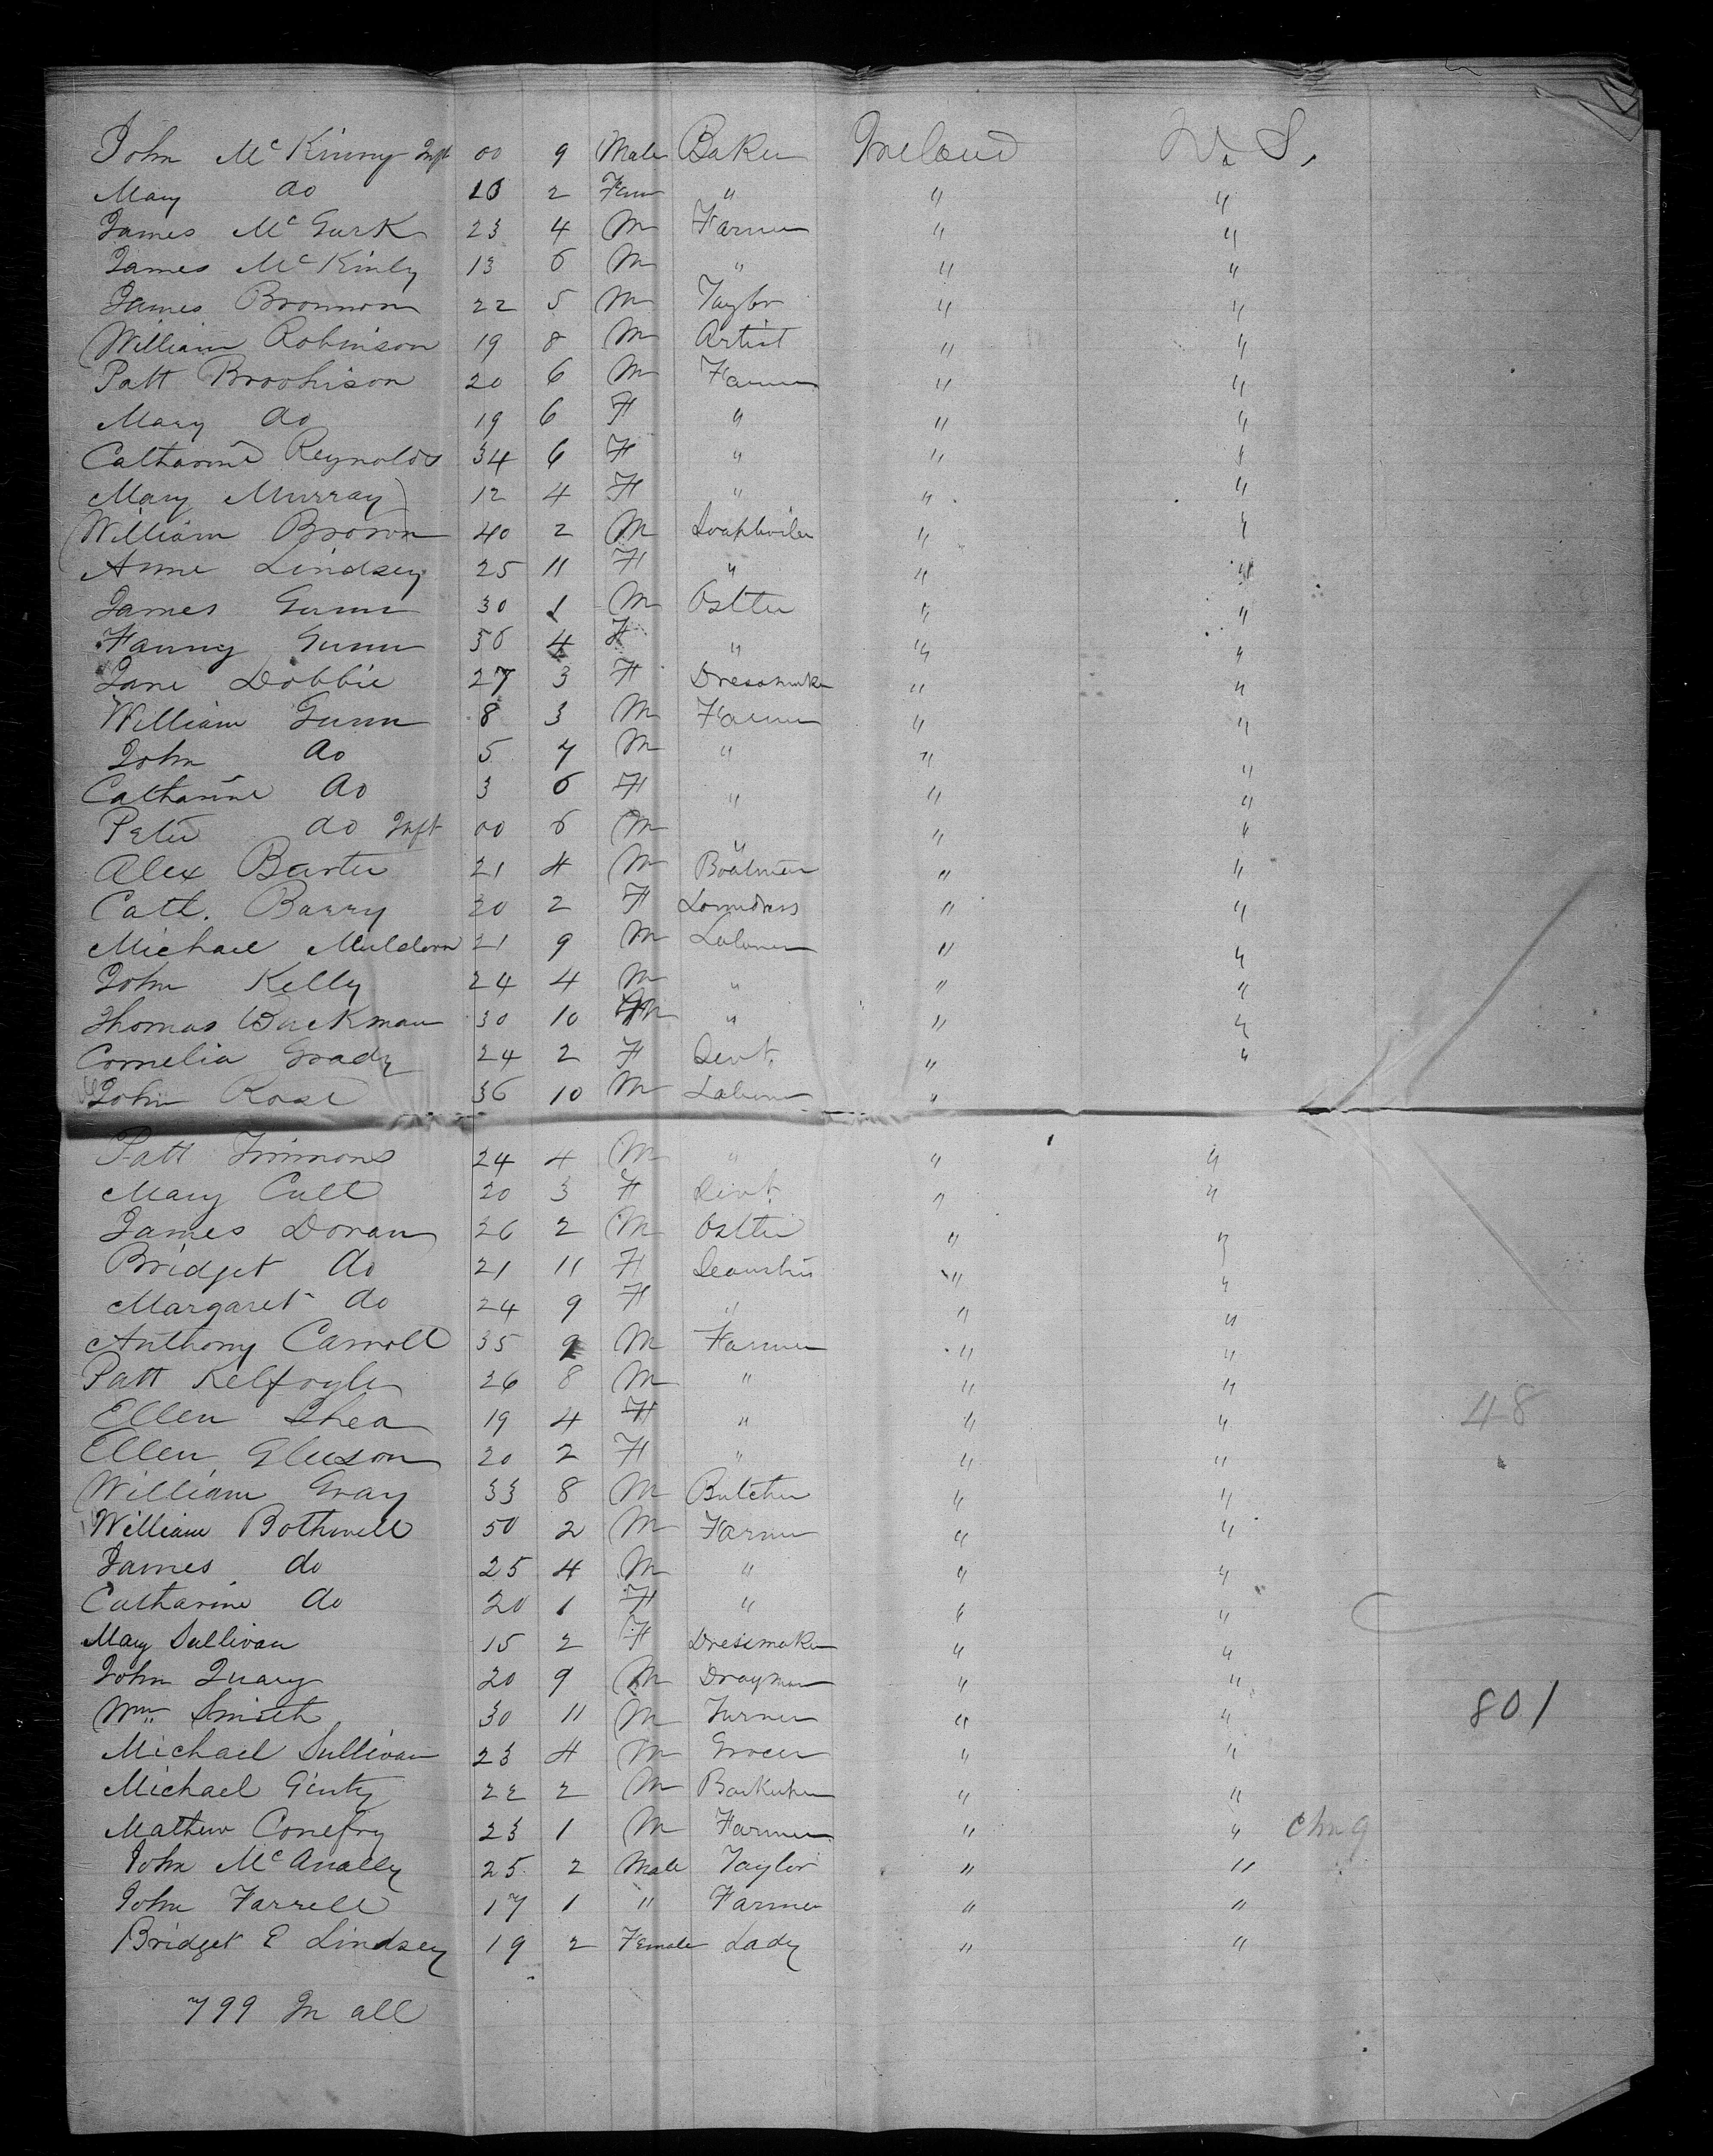 John McKinny Inft 00 9 Male Baker Ireland U. S.
Mary do 10 2 Fem " " "
James McGurk 23 4 M Farmer " "
James McKinly 13 6 M " " "
James Bronnon 22 5 M Taylor " "
William Robinson 19 8 M Artist " "
Patt Broohison 20 6 M Farmer " "
Mary do 19 6 F " " "
Catharine Reynolds 34 6 F " " "
Mary Murray 12 4 F " " "
William Brown 40 2 M Soapboiler " "
Anne Lindsey 25 11 F " " "
James Gunn 30 1 M Ostler " "
Fanny Gunn 36 4 F " " "
Jane Dobbie 27 3 F Dressmaker " "
William Gunn 8 3 M Farmer " "
John do 5 7 M " " "
Catharine do 3 6 F " " "
Peter do Inft 00 6 M " " "
Alex Barter 21 4 M Boatman " "
Cath. Barry 20 2 F Lonndress " "
Michael Muldorn 21 9 M Laborer " "
John Kelly 24 4 M " " "
Thomas Buckman 30 10 M " " "
Cornelia Grady 24 2 F Sevt. " "
John Rose 36 10 M Laborer "
Patt Timmons 24 4 M " " "
Mary Cull 20 3 F Sevt. " "
James Doran 26 2 M Ostler " "
Bridget do 21 11 F " "
Margaret do 24 9 F " " "
Anthony Carroll 35 9 M Farmer " "
Patt 26 8 M " " "
Ellen Shea 19 4 F " " " 48
Ellen Gleeson 20 2 F " " "
William Gray 33 8 M Butcher " "
William Bothwell 50 2 M Farmer " "
James do 25 4 M " " "
Catharine do 20 1 F " " "
Mary Sullivan 15 2 F Dressmaker " "
John Quary 20 9 M Drayman " "
Wm. Smith 30 11 M Turner " " 801
Michael Sullivan 23 4 M Grocer " "
Michael Ginty 22 2 M " "
Mathew Conefry 23 1 M Farmer " "
John McAnally 25 2 Male Taylor " "
John Farrell 17 1 " Farmer " "
Bridget E Lindsey 19 2 Female Lady " "
799 In all